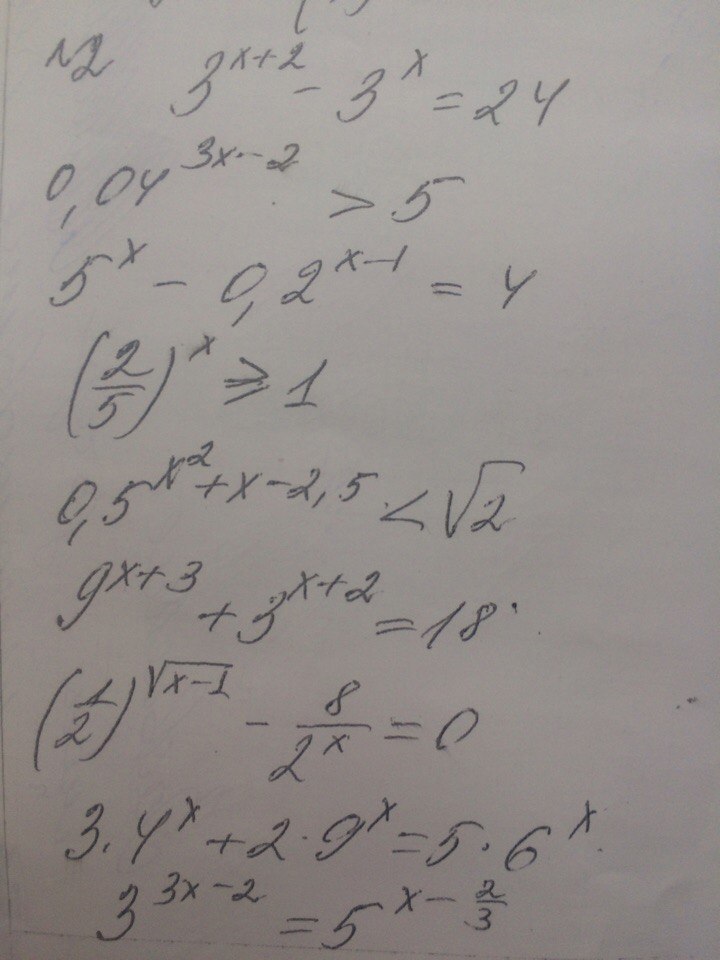 №2 3^{x+2} - 3^x = 24
0,04^{3x-2} > 5
5^x - 0,2^{x-1} = 4
(2/5)^x ⩾ 1
0,5^{x^2+x-2,5} < √2
9^{x+3} + 3^{x+2} = 18
(1/2)^{√(x-1)} - 8/2^x = 0
3·4^x + 2·9^x = 5·6^x
3^{3x-2} = 5^{x-2/3}